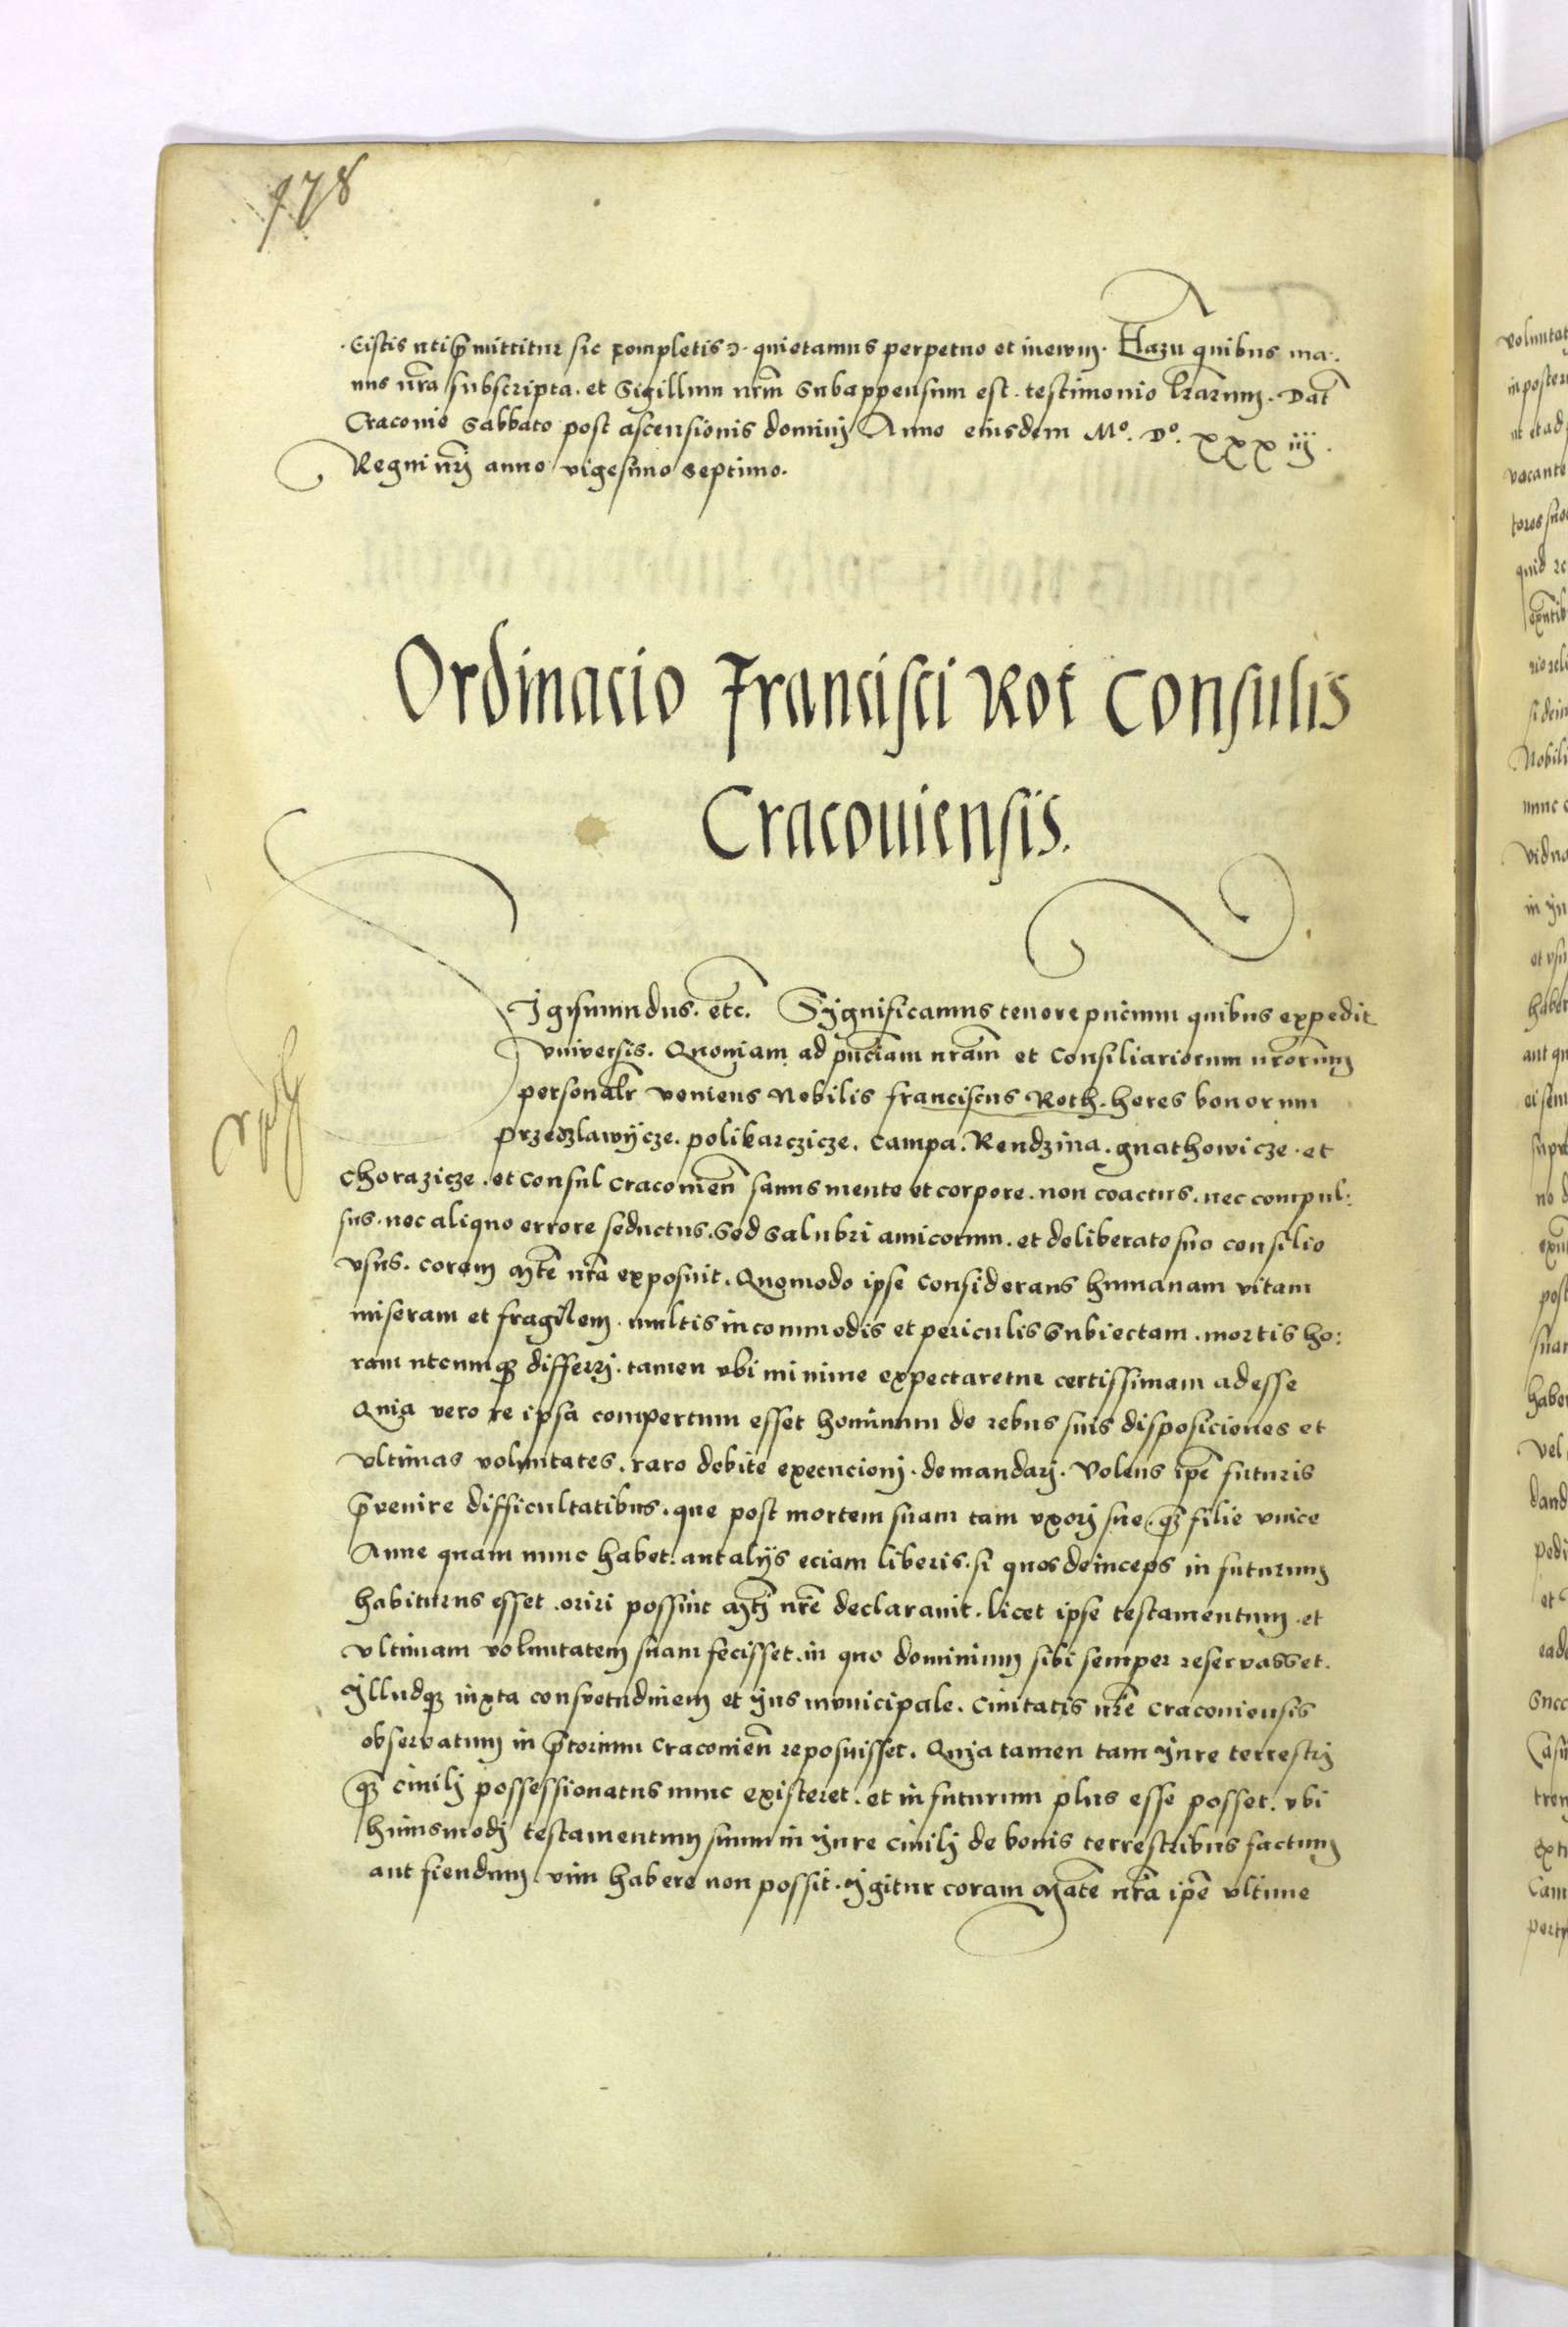 478
Ciſtis uti p̄mittitur ſic completis ꝛ. quietamus perpetuo et in ewm. Harum quibus ma:
nus nr̄a ſubscripta. et Sigillum nrm̄ Subappensum est. testimonio lrarum. Dat̄
Cracouie Sabbato post ascensionis dominj Anno eiusdem Mº. Dº. xxxiij.
Regni nrj anno vigesimo septimo.
Ordinacio Francisci Rot Consulis
Cracouiensis.
Igismundus. etc̄. Significamus tenore pn̄cium quibus expedit
vniversis. Quoniam ad pn̄ciam nram̄ et Consiliariorum nrorum̄
personalr̄ veniens Nobilis franciscus Roth. heres bonorum
przedzlawycze. polikarczicze. Campa. Rendzina. gnathowicze. et
Chorazicze. et Consul Cracouien̄ sanus mente et corpore. non coactus. nec compul:
sus. nec aliquo errore seductus. Sed salubri amicorum. et deliberato suo consilio
vsus. coram Mte nr̄a exposuit. Quomodo ipse considerans humanam vitam
miseram et fragilem. multis incommodis et periculis Subiectam. mortis ho:
ram utcumqꝫ differrj. tamen vbi minime expectaretur certissimam adesse
Quia vero re ipsa compertum esset hominum de rebus suis disposiciones et
vltimas voluntates. raro debite execucionj. demandarj. Volens ip̄e futuris
p̄venire difficultatibus. que post mortem suam tam vxorj sue. qꝫ filie vnice
Anne quam nunc habet. aut alijs eciam liberis. si quos deinceps in futurum
habiturus esset. oriri possint Mtj nr̄e declarauit. licet ipse testamentum. et
vltimam voluntatem suam fecisset. in quo dominium sibi semper reservasset.
Illudqꝫ iuxta consvetudinem et ijus municipale. Ciuitatis nr̄e Cracouiensis
observatum in p̄torium Cracouien̄ reposuisset. Quia tamen tam ijure terrestrj
qꝫ ciuilj possessionatus nunc existeret. et in futurum plus esse posset. vbi
huiusmodj testamentum suum in ijure ciuilj de bonis terrestribus factum
aut fiendum vim habere non possit. Igitur coram Mate nr̄a ip̄e vltime